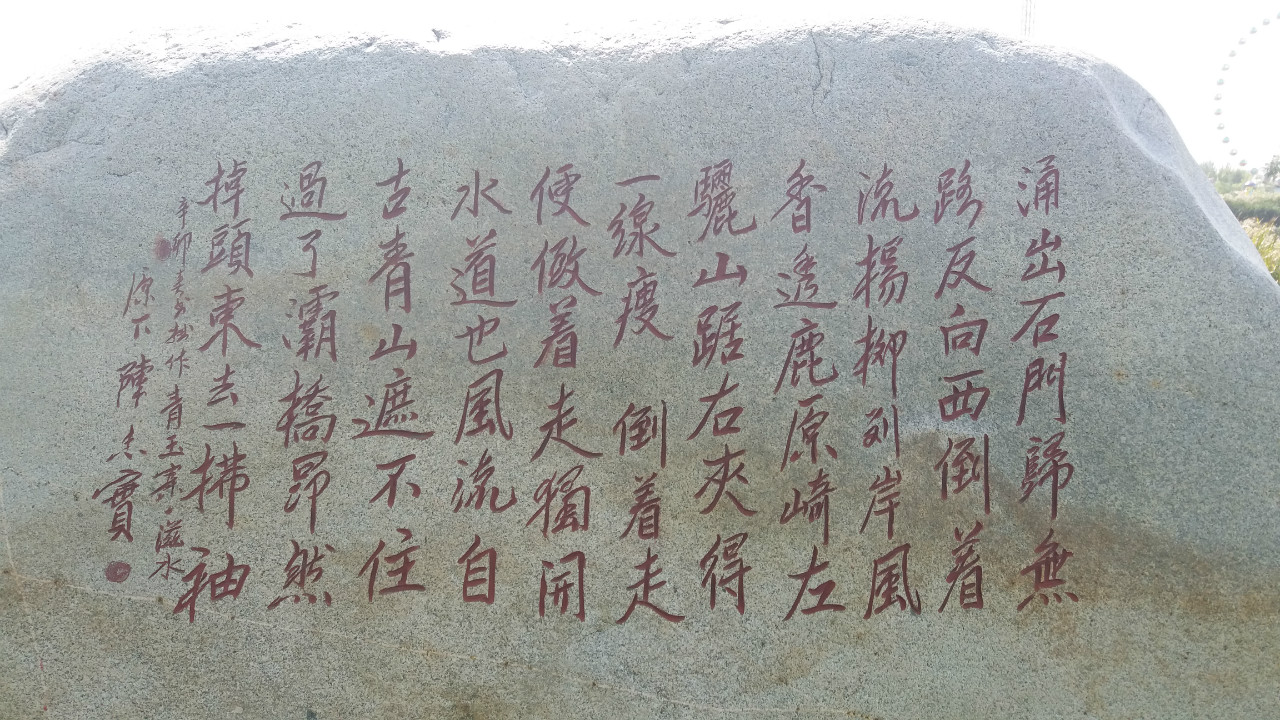 涌出石門歸無
路反向西倒着
流楊栁列岸風
香透鹿原崎左
驪山踞右夾得
一線瘦 倒着走
便倣着走獨開
水道也風流自
古青山遮不住
過了灞橋昂然
掉頭東去一拂袖
辛卯春月於作青玉案·滋水
原下陳忠實